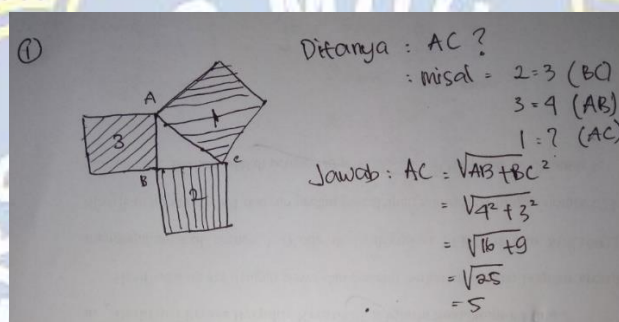 ①
A
3
1
B
C
2
Ditanya : AC ?
: misal = 2 = 3 (BC)
3 = 4 (AB)
1 = ? (AC)
Jawab : AC = √AB + BC²
= √4² + 3²
= √16 + 9
= √25
= 5